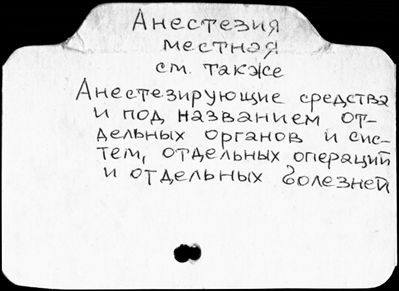 Анестезия
местная
см. также
Анестезирующие средства
и под названием от-
дельных органов и сис-
тем, отдельных операций
и отдельных болезней